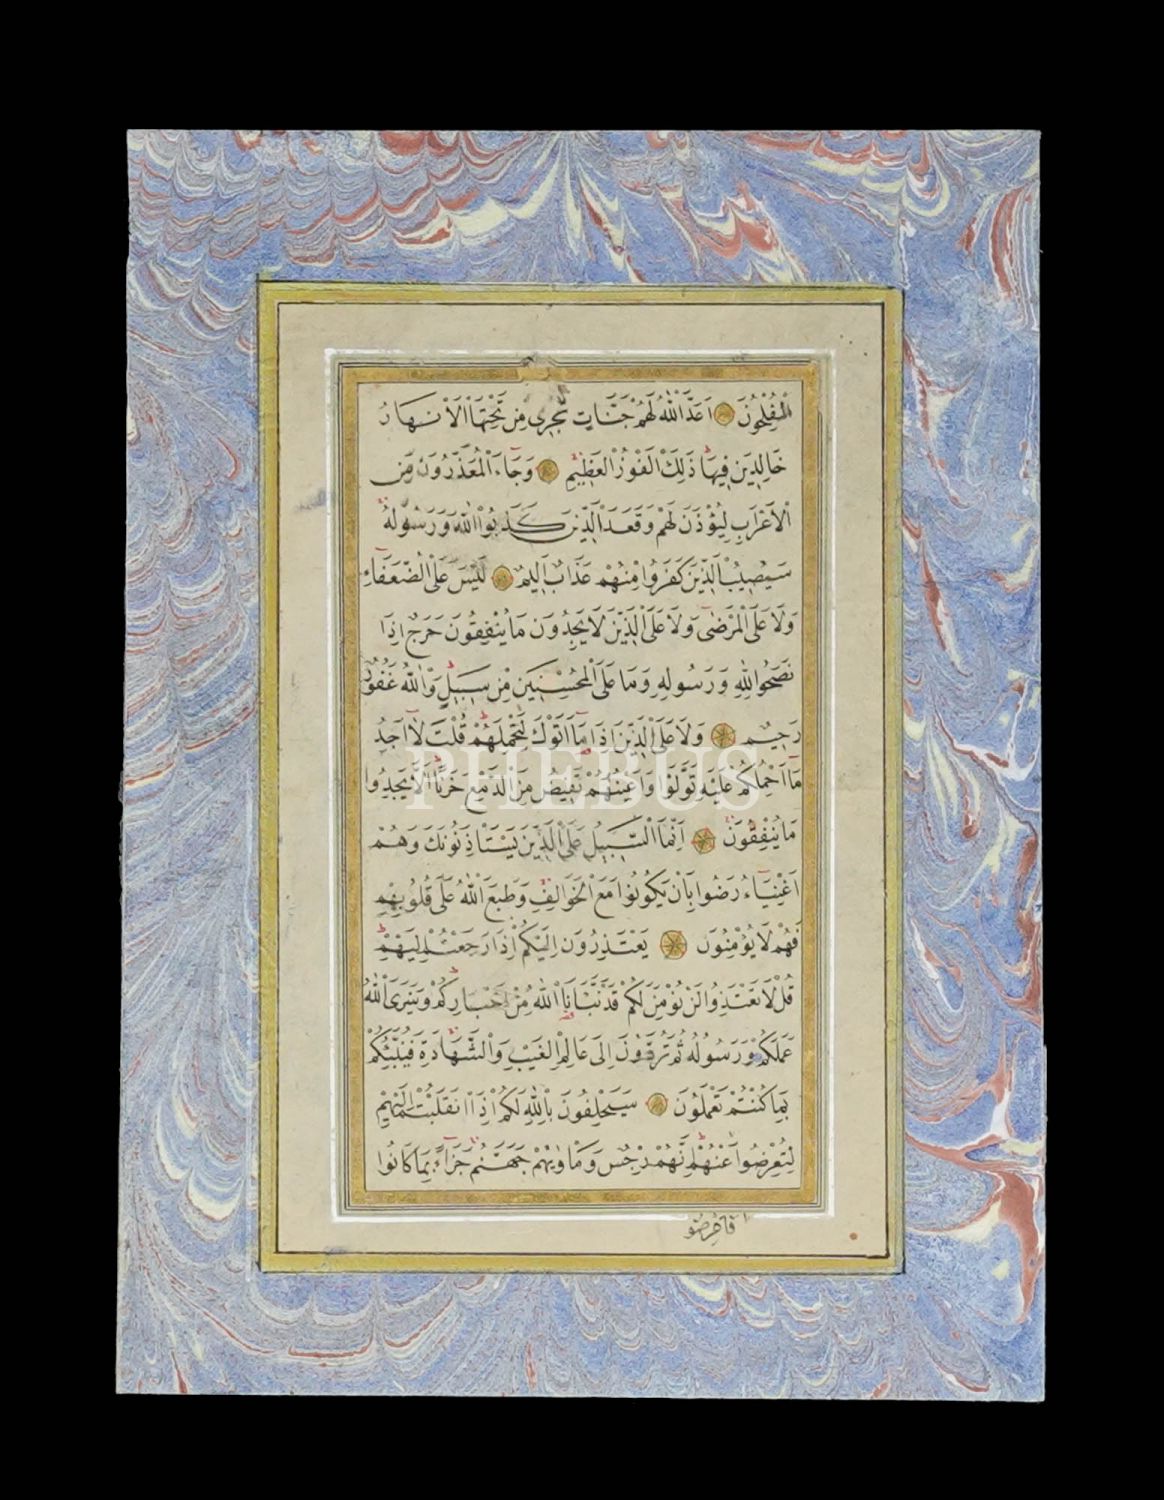 الْمُفْلِحُونَ اَعَدَّ اللّٰهُ لَهُمْ جَنَّاتٍ تَجْرٖى مِنْ تَحْتِهَا الْاَنْهَارُ
خَالِدٖينَ فٖيهَا ذٰلِكَ الْفَوْزُ الْعَظٖيمُ وَجَاءَ الْمُعَذِّرُونَ مِنَ
الْاَعْرَابِ لِيُؤْذَنَ لَهُمْ وَقَعَدَ الَّذٖينَ كَذَبُوا اللّٰهَ وَرَسُولَهُ
سَيُصٖيبُ الَّذٖينَ كَفَرُوا مِنْهُمْ عَذَابٌ اَلٖيمٌ لَيْسَ عَلَى الضُّعَفَاءِ
وَلَا عَلَى الْمَرْضٰى وَلَا عَلَى الَّذٖينَ لَا يَجِدُونَ مَا يُنْفِقُونَ حَرَجٌ اِذَا
نَصَحُوا لِلّٰهِ وَرَسُولِهٖ وَمَا عَلَى الْمُحْسِنٖينَ مِنْ سَبٖيلٍ وَاللّٰهُ غَفُورٌ
رَحٖيمٌ وَلَا عَلَى الَّذٖينَ اِذَا مَا اَتَوْكَ لِتَحْمِلَهُمْ قُلْتَ لَا اَجِدُ
مَا اَحْمِلُكُمْ عَلَيْهِ تَوَلَّوْا وَاَعْيُنُهُمْ تَفٖيضُ مِنَ الدَّمْعِ حَزَنًا اَلَّا يَجِدُوا
مَا يُنْفِقُونَ اِنَّمَا السَّبٖيلُ عَلَى الَّذٖينَ يَسْتَاْذِنُونَكَ وَهُمْ
اَغْنِيَاءُ رَضُوا بِاَنْ يَكُونُوا مَعَ الْخَوَالِفِ وَطَبَعَ اللّٰهُ عَلٰى قُلُوبِهِمْ
فَهُمْ لَا يُؤْمِنُونَ يَعْتَذِرُونَ اِلَيْكُمْ اِذَا رَجَعْتُمْ اِلَيْهِمْ
قُلْ لَا تَعْتَذِرُوا لَنْ نُؤْمِنَ لَكُمْ قَدْ نَبَّاَنَا اللّٰهُ مِنْ اَخْبَارِكُمْ وَسَيَرَى اللّٰهُ
عَمَلَكُمْ وَرَسُولُهُ ثُمَّ تُرَدُّونَ اِلٰى عَالِمِ الْغَيْبِ وَالشَّهَادَةِ فَيُنَبِّئُكُمْ
بِمَا كُنْتُمْ تَعْمَلُونَ سَيَحْلِفُونَ بِاللّٰهِ لَكُمْ اِذَا انْقَلَبْتُمْ اِلَيْهِمْ
لِتُعْرِضُوا عَنْهُمْ اِنَّهُمْ رِجْسٌ وَمَاْوٰيهُمْ جَهَنَّمُ جَزَاءً بِمَا كَانُوا
PHEBUS